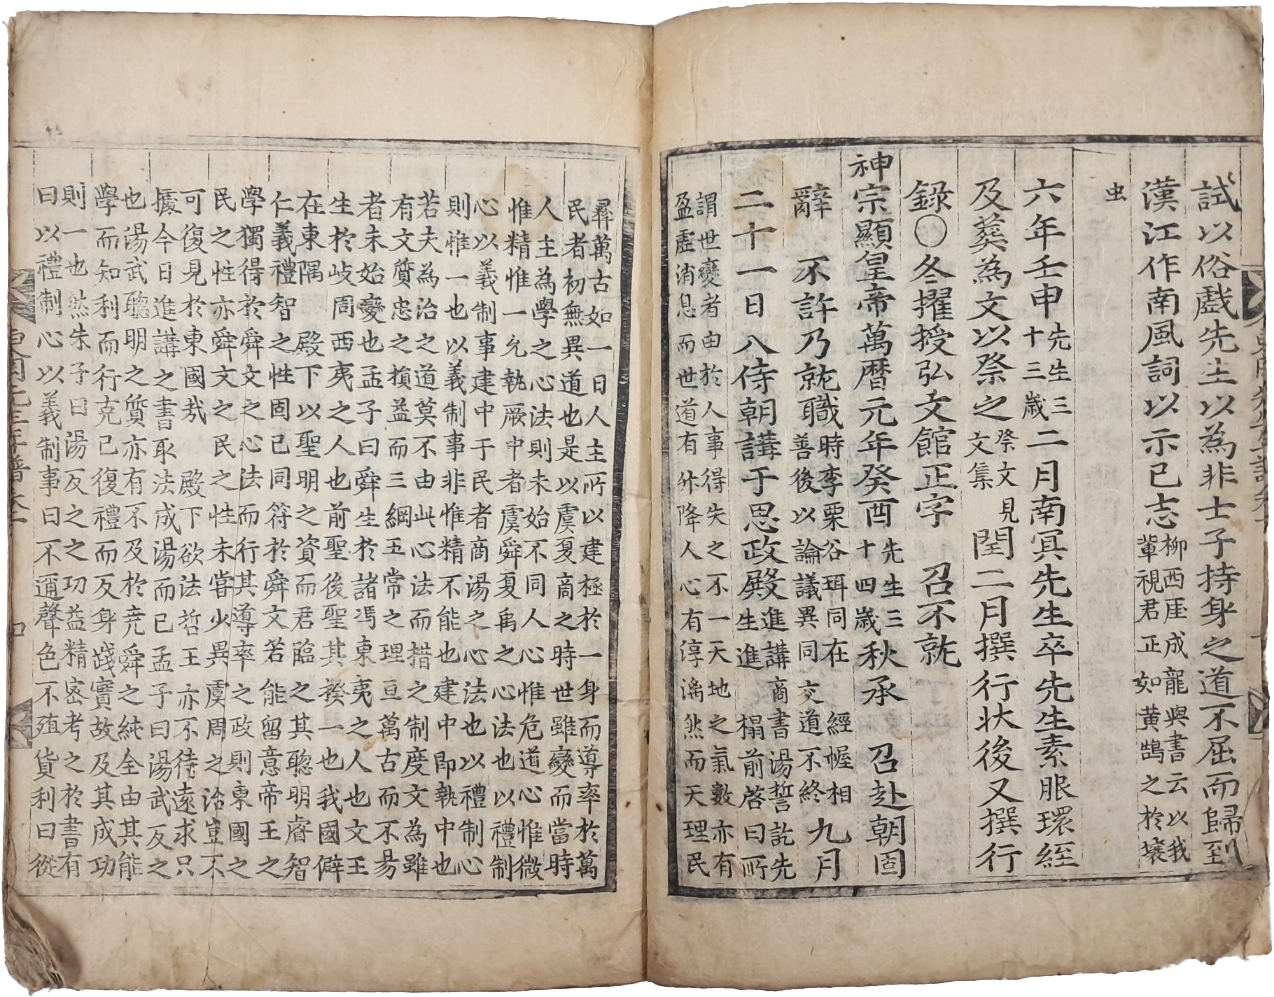 試以俗戲先生以為非士子持身之道不屈而歸到
漢江作南風詞以示己志柳西厓成龍與書云以我
輩視君正如黃鵠之於壤
虫
六年壬申先生三十三歲二月南冥先生卒先生素服環絰
及葬為文以祭之祭文見文集閏二月撰行狀後又撰行
録○冬擢授弘文館正字 召不就
神宗顯皇帝萬曆元年癸酉先生三十四歲秋承 召赴朝固
辭 不許乃就職時李栗谷珥同在 經幄相善後以論議異同交道不終九月
二十一日入侍朝講于思政殿進講商書湯誓訖先生進 榻前啓曰所
謂世變者由於人事得失之不一天地之氣數亦有
盈虛消息而世道有升降人心有淳漓然而天理民
彛萬古如一日人主所以建極於一身而導率於萬
民者初無異道也是以虞夏商之時世雖變而當時
人主為學之心法則未始不同人心惟危道心惟微
惟精惟一允執厥中者虞舜夏禹之心法也以禮制
心以義制事建中于民者商湯之心法也以禮制心
則惟一也以義制事非惟精不能也建中即執中也
若夫為治之道莫不由此心法而措之制度文為雖
有文質忠之損益而三綱五常之理亘萬古而不易
者未始變也孟子曰舜生於諸馮東夷之人也文王
生於岐周西夷之人也前聖後聖其揆一也我國僻
在東隅 殿下以聖明之資而君臨之其聰明睿智
仁義禮智之性固已同符於舜文若能留意帝王之
學獨得於舜文之心法而行其導率之政則東國之
民之性亦舜文之民之性未嘗少異虞周之治豈不
可復見於東國哉 殿下欲法哲王亦不待遠求只
據今日進講之書取法成湯而已孟子曰湯武反之
也湯武聰明之質亦有不及於堯舜之純全由其能
學而知利而行克己復禮而反身踐實故及其成功
則一也然朱子曰湯反之之功益精密考之於書有
曰以禮制心以義制事曰不邇聲色不殖貨利曰從